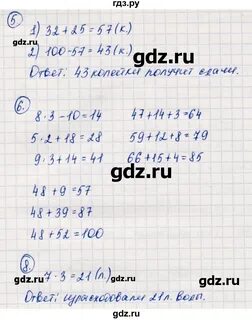 гдз.ру
5
1) 32 + 25 = 57 (к.)
2) 100 - 57 = 43 (к.)
Ответ: 43 копейки получит сдачи.
6.
8 · 3 - 10 = 14 47 + 14 + 3 = 64
5 · 2 + 18 = 28 59 + 12 + 8 = 79
9 · 3 + 14 = 41 66 + 15 + 4 = 85
48 + 9 = 57
48 + 39 = 87
48 + 52 = 100
8
7 · 3 = 21 (л)
Ответ: израсходовали 21 л воды.
gdz.ru
gdz.ru
gdz.ru
gdz.ru